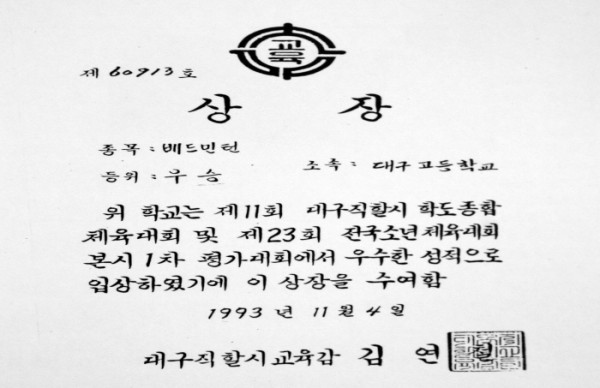 교육
제 60913 호
상 장
종목 : 배드민턴
등위 : 우 승
소속 : 대구고등학교
위 학교는 제11회 대구직할시 학도종합
체육대회 및 제23회 전국소년체육대회
본시 1차 평가대회에서 우수한 성적으로
입상하였기에 이 상장을 수여함
1993 년 11 월 4 일
대구직할시교육감 김 연 철